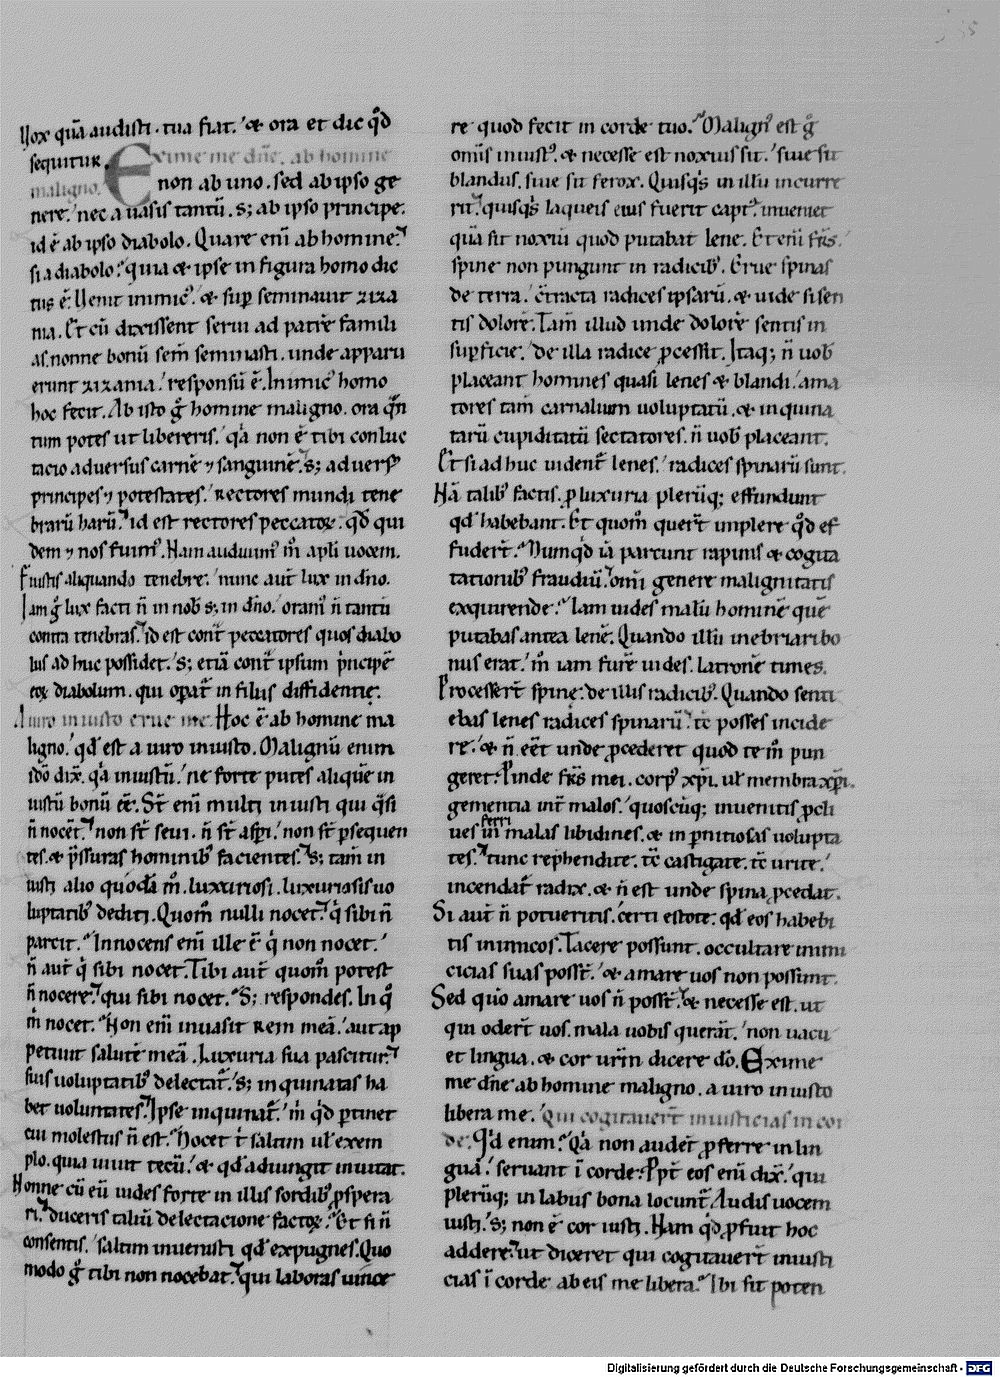 Uox quā audisti. tua fiat. ⁊ ora et dic qd̄
sequitur. Exime me dn̄e. ab homine
maligno. non ab uno. sed ab ipso ge
nere. nec a uasis tantū. s; ab ipso principe.
id ē ab ipso diabolo. Quare eni ab homine.
si a diabolo. quia & ipse in figura homo dic
tus ē. Uenit inimic᾿. & sup̄ seminauit ziza
nia. Et cū dixissent serui ad patrē famili
as. nonne bonū sem̄ seminasti. unde apparu
erunt zizania. responsū ē. Inimic᾿ homo
hoc fecit. Ab isto g̊ homine maligno. ora qn̄
tum potes ut libereris. qa non ē tibi conluc
tacio aduersus carnē ⁊ sanguinē. s; aduers᾿
principes ⁊ potestates. rectores mundi tene
brarū harū. id est rectores peccatoꝝ. qd̄ qui
dem ⁊ nos fuim᾿. Nam audiuim᾿ m̄ apli uocem.
Fuistis aliquando tenebre. nunc aut̄ lux in dn̄o.
Iam g̊ lux facti n̄ in nob̄ s; in dn̄o. orem᾿ n̄ tantū
contra tenebras. id est cont̄ peccatores quos diabo
lus ad huc possidet. s; etiā cont̄ ipsum p̄ncipē
eoꝝ diabolum. qui op̄at̄ in filiis diffidentie.
A uiro iniusto erue me. Hoc ē ab homine ma
ligno. qd̄ est a uiro iniusto. Malignū enim
idō dix̄. qa iniustū. ne forte putes aliquē in
iustū bonū eē. St̄ eni multi iniusti qui qsi
n̄ nocēt. non st̄ seui. n̄ st̄ asp̄i. non st̄ p̱sequen
tes. & p̄ssuras hominib᾿ facientes. s; tam̄ in
iusti alio quodā m̄. luxuriosi. luxuriosis uo
luptatib᾿ dediti. Quom̄ nulli nocet. q sibi n̄
parcit. Innocens eni ille ē q non nocet.
n̄ aut̄ q sibi nocet. Tibi aut̄ quom̄ potest
n̄ nocere. qui sibi nocet. S; respondes. In q̊
m̄ nocet. Non eni inuasit rem meā. aut ap
petiuit salutē meā. Luxuria sua pascitur.
suis uoluptatib᾿ delectat̄. s; inquinatas ha
bet uoluntates. Ipse inquinat̄. m̄ qd̄ p̱tinet
cui molestus n̄ est. Nocet t̄ saltim ul̄ exem
plo. quia uiuit tecū. & qd̄ adiungit inuitat.
Nonne cū eū uides forte in illis sordib᾿ p̱spera
ri. duceris taliū delectacione factoꝝ. Et si n̄
consentis. saltim inuenisti qd̄ expugnes. Quo
modo g̊ tibi non nocebat. qui laboras uince
re quod fecit in corde tuo. Malign᾿ est g̊
omis iniust᾿. & necesse est noxius sit. siue sit
blandus. siue sit ferox. Quisqs in illū incurre
rit. quisqs laqueis eius fuerit capt᾿. inueniet
quā sit noxiū quod putabat lene. Eteni frs̄.
spine non pungunt in radicib᾿. Erue spinas
de terra. ctracta radices ipsarū. & uide si sen
tis dolorē. Tam̄ illud unde dolorē sentis in
sup̱ficie. de illa radice ꝓcessit. Itaq; n̄ uob᾿
placeant homines quasi lenes & blandi. ama
tores tam̄ carnalium uoluptatū. & inquina
tarū cupiditatū sectatores. n̄ uob᾿ placeant.
Et si ad huc uident̄ lenes. radices spinarū sunt.
Nā talib᾿ factis. ꝓ luxuria plerūq; effundunt
qd̄ habebant. Et quom̄ quert̄ implere qd̄ ef
fudert̄. Numqd̄ iā parcunt rapinis & cogita
tationib᾿ fraudiū. omi genere malignitatis
exquirende. Iam uides malū hominē quē
putabas antea lenē. Quando illū inebriari bo
nus erat. m̄ iam furē uides. latronē times.
Processert̄ spine. de illis radicib᾿. Quando senti
ebas lenes radices spinarū. tc̄ posses incide
re. & n̄ eēt unde ꝓcederet quod te m̄ pun
geret. Pinde frs̄ mei. corp᾿ xp̄i. ul̄ membra xp̄i.
gementia int̄ malos. quoscūq; inuenitis ꝓcli
ues ferri in malas libidines. & in p̱nitiosas uolupta
tes. tunc rep̱hendite. tc̄ castigate. tc̄ urite.
incendat̄ radix. & n̄ est unde spina ꝓcedat.
Si aut̄ n̄ potueritis. certi estote. qd̄ eos habebi
tis inimicos. Tacere possunt. occultare inimi
cicias suas posst̄. & amare uos non possunt.
Sed quō amare uos n̄ posst̄. & necesse est. ut
qui odert̄ uos. mala uobis querāt. non uacu
et lingua. & cor ur̄m dicere dō. Exime
me dn̄e ab homine maligno. a uiro iniusto
libera me. Qui cogitauert̄ iniusticias in cor
de. Qd̄ enim. Qa non audet̄ ꝓferre in lin
guā. seruant ī corde. Ppt̄ eos eni dix̄. qui
plerūq; in labiis bona locunt̄. Audis uocem
iusti. s; non ē cor iusti. Nam qd̄ ꝓfuit hoc
addere. ut diceret qui cogitauert̄ iniusti
cias ī corde ab eis me libera. Ibi sit poten
Digitalisierung gefördert durch die Deutsche Forschungsgemeinschaft - DFG